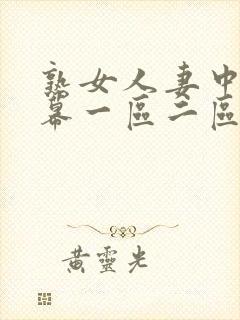 熟女人妻中
幕一區二區
黃靈光